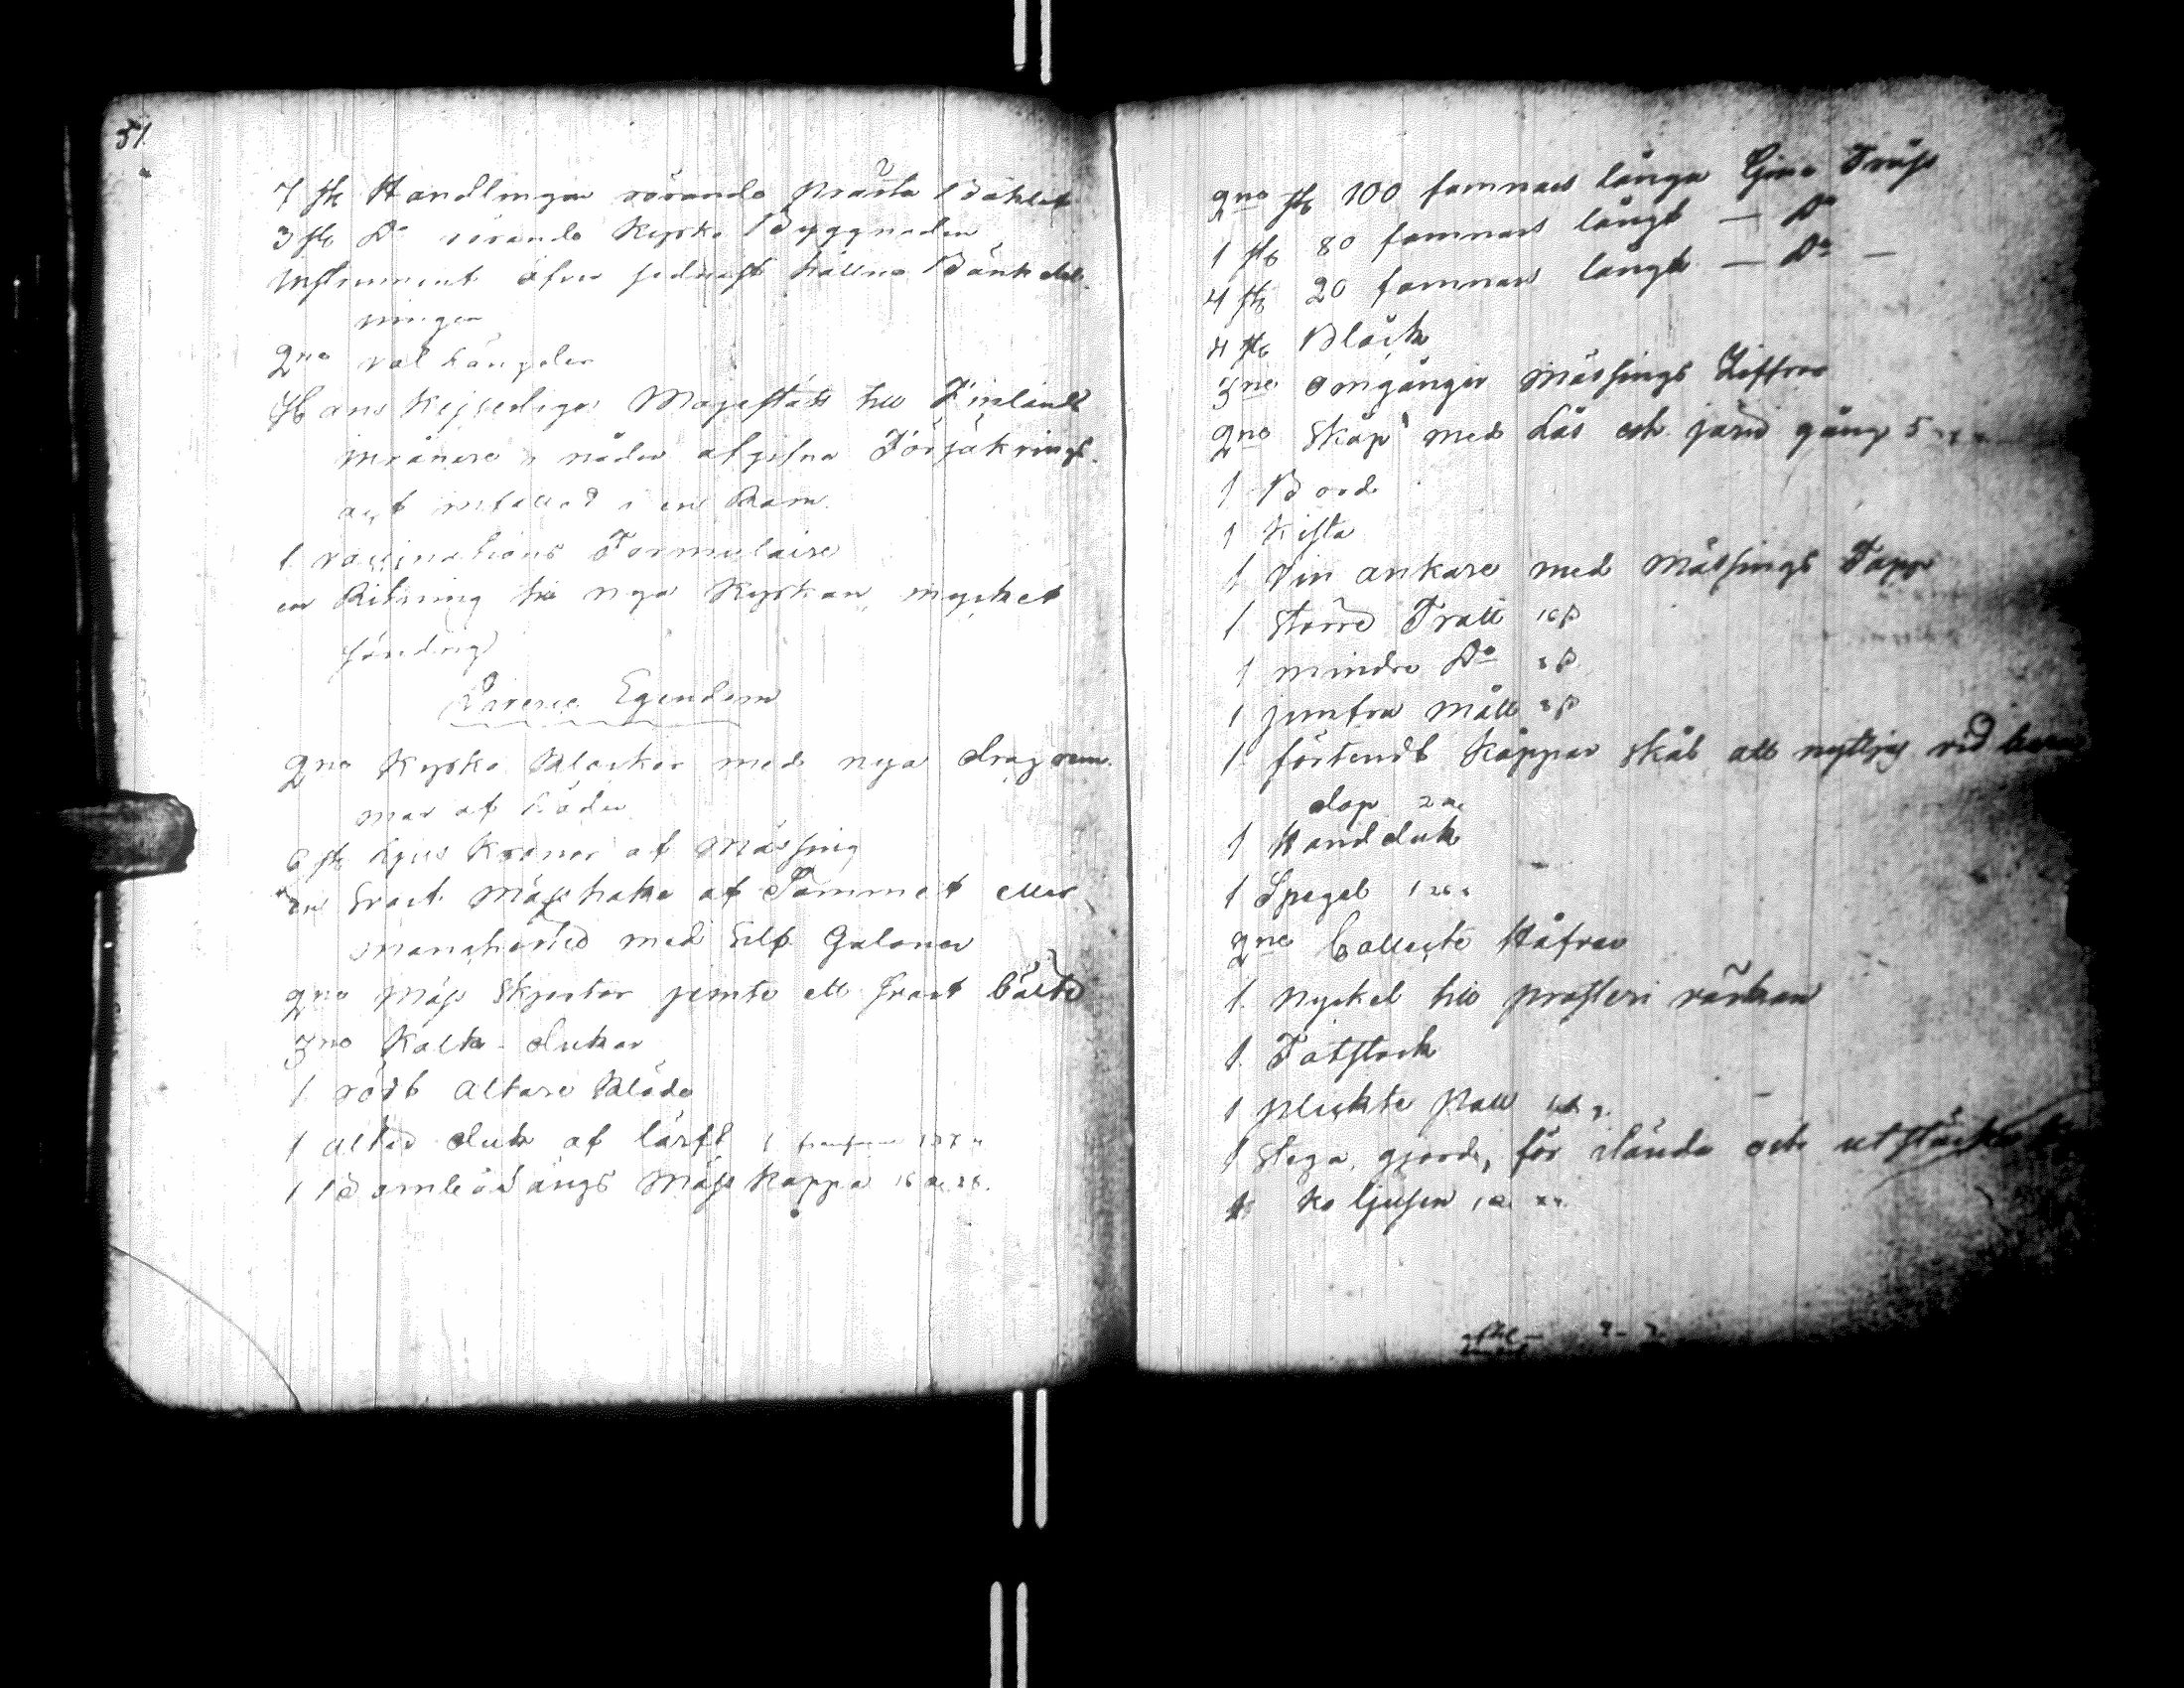 51.
7 st Handlingar rörande Prästa Bohlet
3 st Do rörande Kyrko Byggnaden
Instrument öfver sednast hållne Bänkdel-
ningen
2ne val längder
Hans Kejserliga Majestäts till Finlands
invånare i nåder afgifna Försäkrings
act infattad i en Ram.
1 vaccinations Formulaire
en Ritning till nya Kyrkan, mycket
söndrig
Diverse Egendom
2ne Kyrko Klockor med nya drag rem-
mar af Läder
6 st Ljus Kronor af Mässing
en Svart Mässhake af Sammet eller
Manchester med Silf. Galoner
2ne Mäss Skjortor jemte ett svart bälte
3ne Kalk-dukar
1 rödt Altare Kläde
1 altar duk af lärft 1
1 Bomb Mäss Kappa
2ne st 100 famnars långa Tross
1 st 80 famnars långt — Do
4 st 20 famnars långt — Do —
4 st Bläck
3ne omgångar Mässings Ziffror
2ne Skåp med Lås och gång 5
1 Bord
1 Kista
1 Vin ankare med Mässings Tapp
1 större Tratt 16 β
1 mindre Do 8 β
1 jumfru Mått 8 β
1 förtendt Koppar skål att nyttjas vid barn
dop
1 Handduk
1 Spegel
2ne Collecte Håfvar
1 Nyckel till prosteri
1 Fotstock
1 plickte Pall
1 Stega, gjord, för och
Ko ljusen